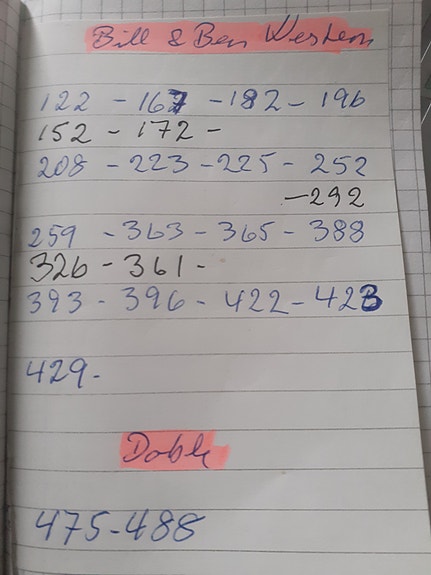 Bill & Ben Western
122 - 167 - 182 - 196
152 - 172 -
208 - 223 - 225 - 252
- 292
259 - 363 - 365 - 388
326 - 361 -
393 - 396 - 422 - 423
429 -
Doble
475 - 488